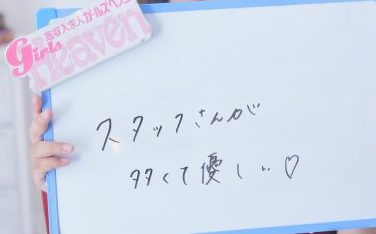 高収入求人ガールズヘブン
Girls
Heaven
スタッフさんが
多くて優しい♡